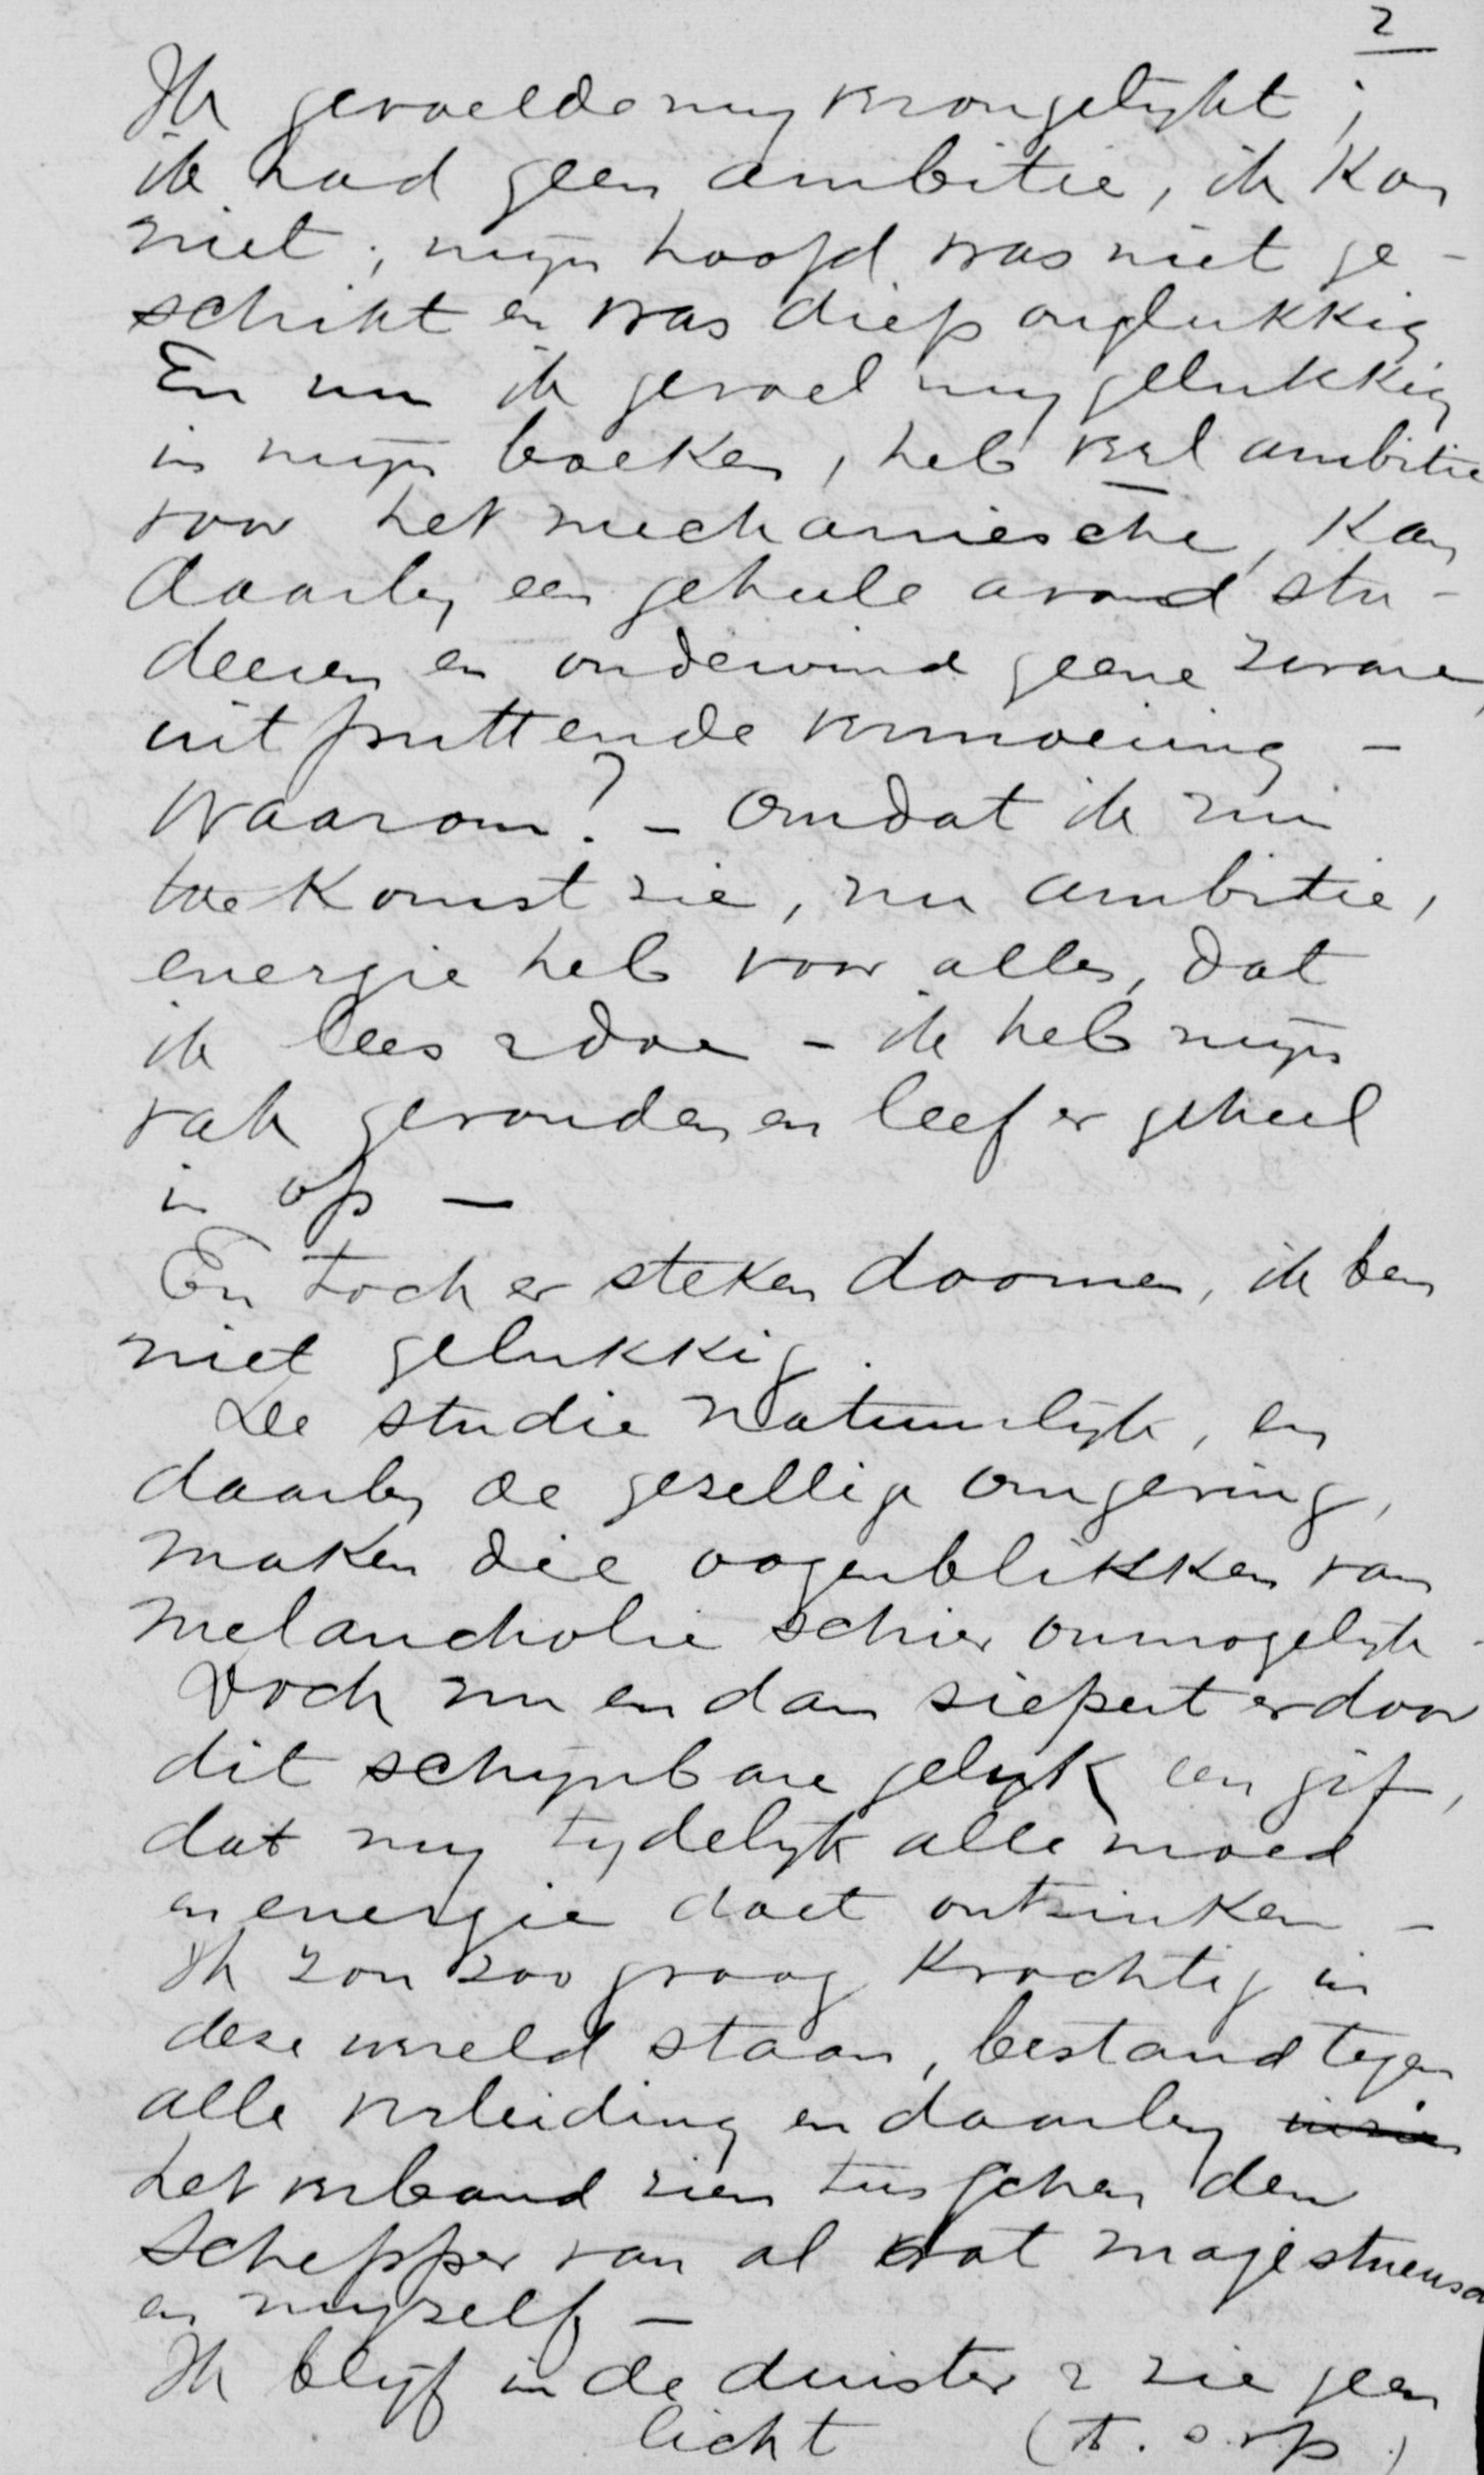 2
Ik gevoelde my verongelykt;
ik had geen ambitie, ik kon
niet; mijn hoofd was niet ge-
schikt en was diep ongelukkig
En nu ik gevoel my gelukkig
in mijn boeken, heb veel ambitie
voor het mechaniesche, kan
daarby een geheele avond stu-
deeren en ondervind geene zware,
uitputtende vermoeiing -
Waarom? - Omdat ik nu
toekomst zie, nu ambitie,
energie heb voor alles, dat
ik lees & doe - ik heb mijn
vak gevonden en leef er geheel
in op -
En toch er steken doornen, ik ben
niet gelukkig.
De studie natuurlyk, en
daarby de gezellige omgeving,
maken die oogenblikken van
melancholie schier onmogelyk -
Doch nu en dan siepert er door
dit schijnbare geluk een gif,
dat my tydelyk alle moed
en energie doet ontzinken -
Ik zou zoo graag krachtig in
deze wereld staan, bestand tegen
alle verleiding en daarby
het verband zien tusschen den
Schepper van al dat majestueuse
en myzelf -
Ik blijf in de duister & zie geen
licht